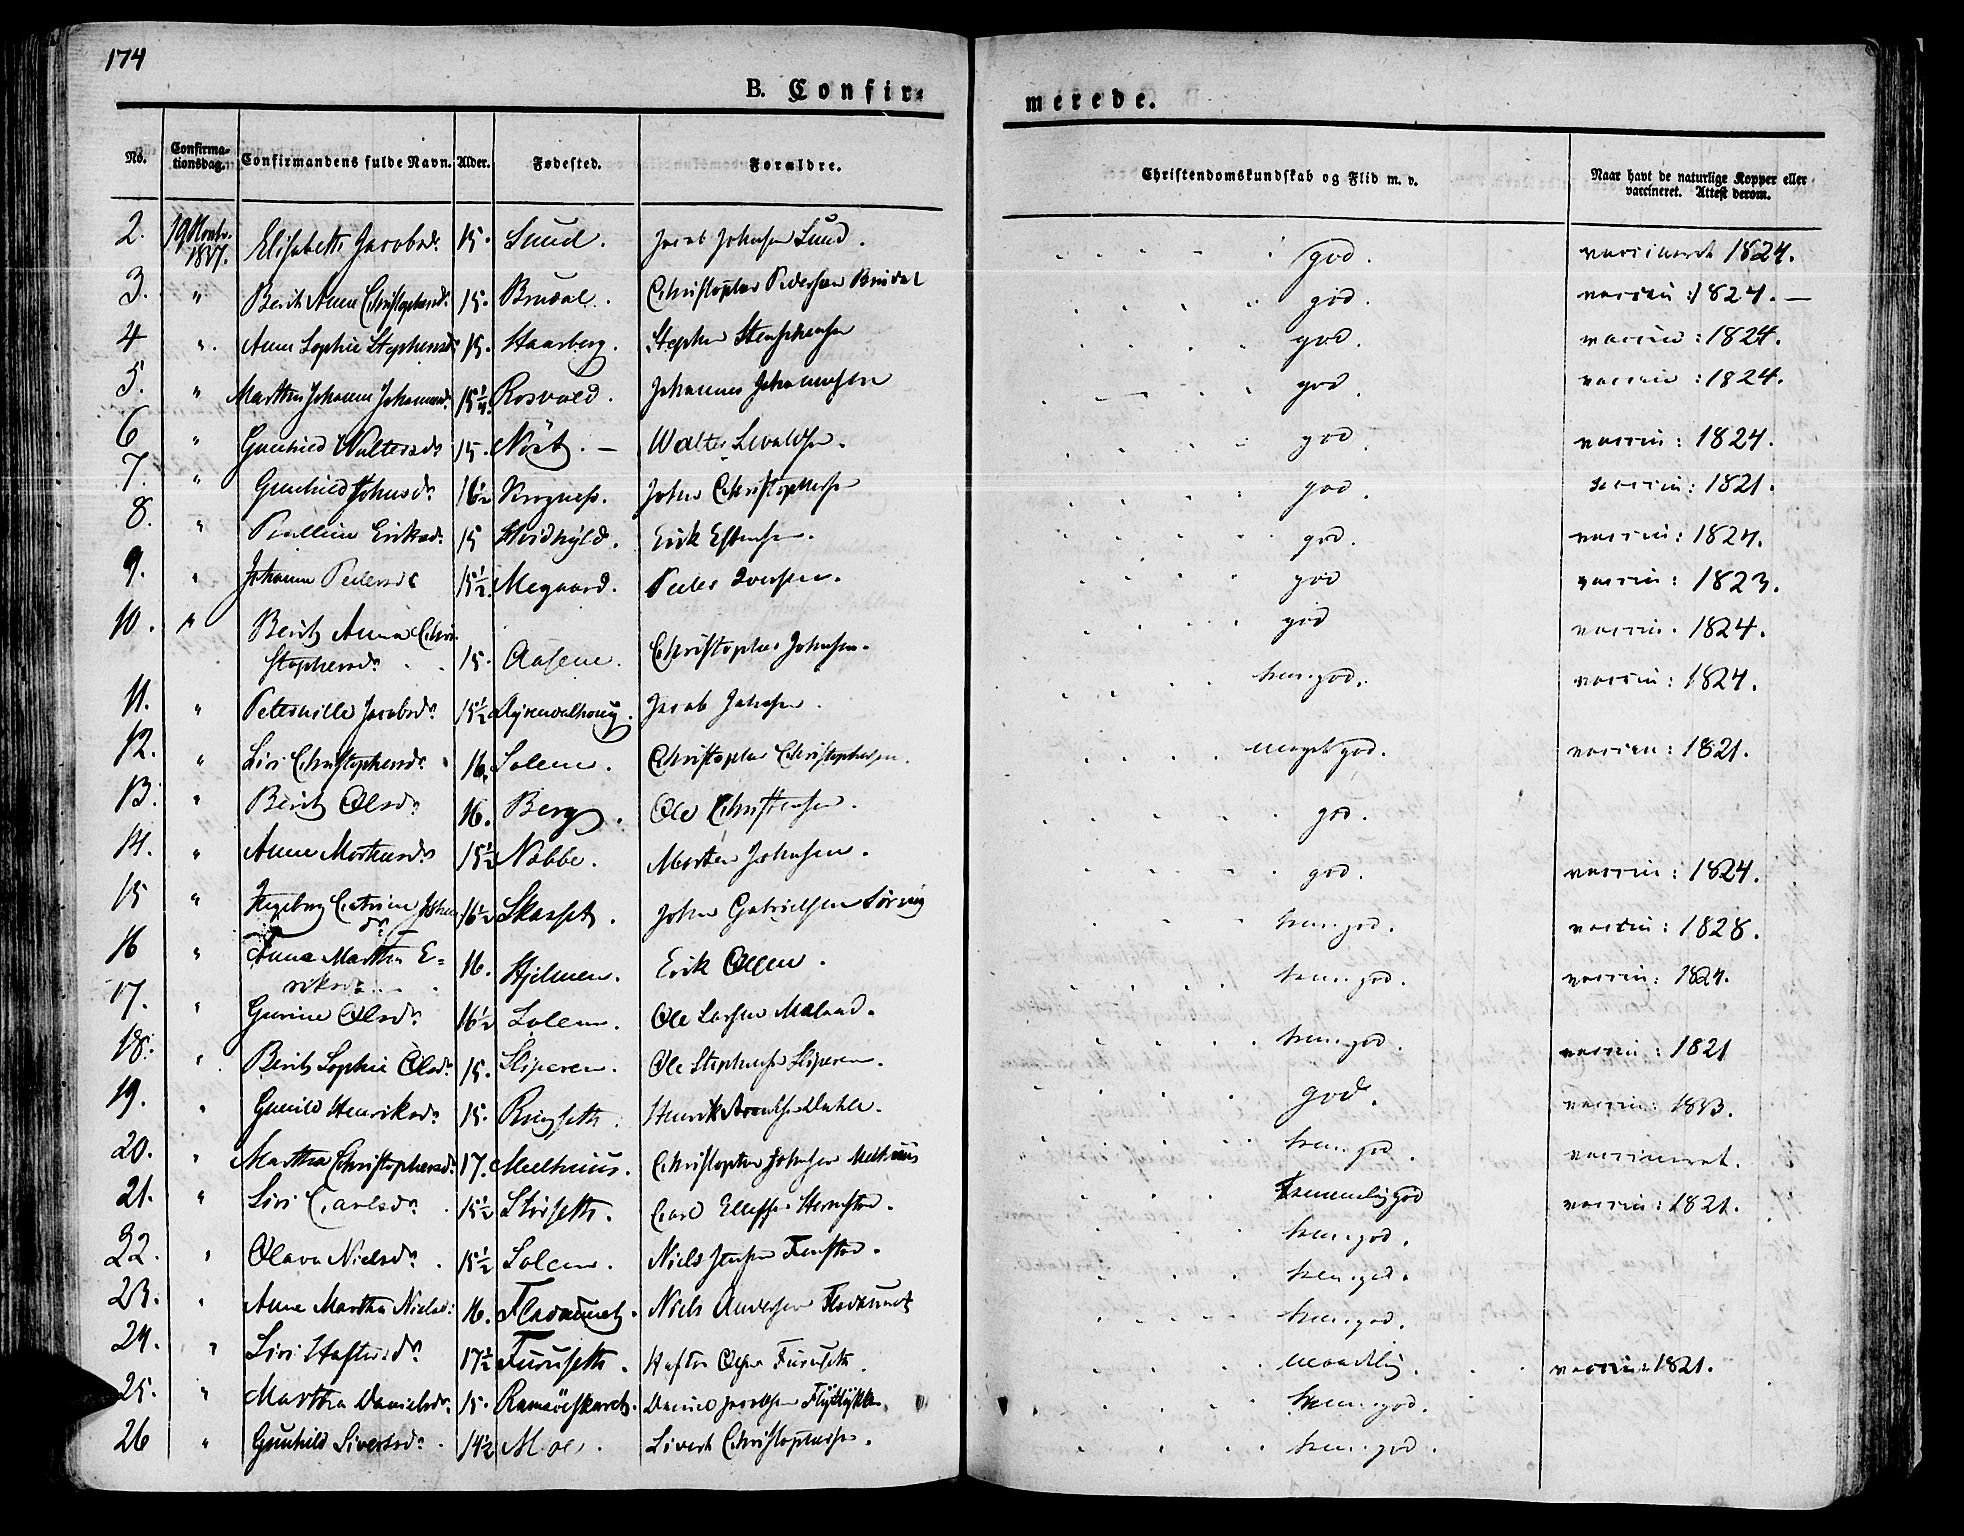 174
B. Confir-
merede.
No.
Confirma-
tionsdag.
Confirmandens fulde Navn.
Alder.
Fødested.
Forældre.
Christendomskundskab og Flid m. v.
Naar havt de naturlige Kopper eller
vaccineret. Attest derom.
2. 19 Novbr. 1837. Elisabeth Jacobsd. 15. Lund. Jacob Johnsen Lund. god. vaccineret 1824.
3. " Berit Anne Christophersd. 15. Brudal. Christopher Pedersen Brudal god. vaccin: 1824. —
4 " Anne Sophie Stephensd. 15. Haarberg. Stephen Stephensen god. vaccin: 1824.
5. " Marthe Johanne Johannesd. 15¼ Rosvold. Johannes Johannesen god. vaccin: 1824.
6 " Gunhild Waltersd. 15. Nöst. — Walter Sivaldsen. god vaccin: 1824.
7. " Gunhild Johnsd. 16½ John Christophersen god. vaccin: 1821.
8. " Eriksd. 15 Hvidhyld. Erik Estensen. god. vaccin: 1824.
9. " Johanne Pedersd. 15½ Megaard. Peder Iversen. god vaccin: 1823.
10. " Berit Anna Chri-
stophersd. 15. Aasene. Christopher Johnsen. god vaccin. 1824.
11. " Peternille Jacobsd. 15½ Jacob Johnsen. tem. god. vaccin: 1824.
12. " Siri Christophersd. 16. Solem. Christopher Christophersen. meget god. vaccin: 1821.
13. " Berit Olsd. 16. Berg. Ole Christensen. god.
14. " Anne Mortensd. 15½ Nabbe. Morten Johnsen. god. vaccin: 1824.
15 " Ingebreg Catrine John
sd. 16½ Skasset. John Gabrielsen tem. god. vaccin: 1828.
16 " Anne Martha E-
riksd. 16. Hjelmen. Erik Olsen. tem. god. vaccin: 1824.
17. " Gurine Olsd. 16½ Solem. Ole Larsen tem. god. vaccin: 1821
18. " Berit Sophie Olsd. 15. Sliperen. Ole Stephensen Sliperen. god. vaccin: 1833.
19. " Gunild Henriksd. 15. Ringseth. Henrik Arntsen Dahle. tem. god. vaccineret.
20. " Martha Christophersd. 17. Melhuus. Christopher Johnsen Melhuus Temmelig god vaccin: 1821.
21. " Siri Carlsd. 15½ Störseth. Carl Ellefsen tem. god.
22. " Olava Nielsd. 15½ Solem. Niels Jensen tem. god.
23. " Anne Martha Nielsd. 16. Fladaunet. Niels Andersen Fladaunet tem. god.
24. " Siri Haftorsd. 17½ Furuseth. Haftor Olsen Furuseth. maadelig. vaccin: 1821.
25. " Martha Danielsd. 15. Ramsöeskaret. Daniel Jacobsen Flÿtlÿkken. tem. god.
26 " Gunhild Sivertsd. 14½ Moe. Sivert Christophersen. tem. god.